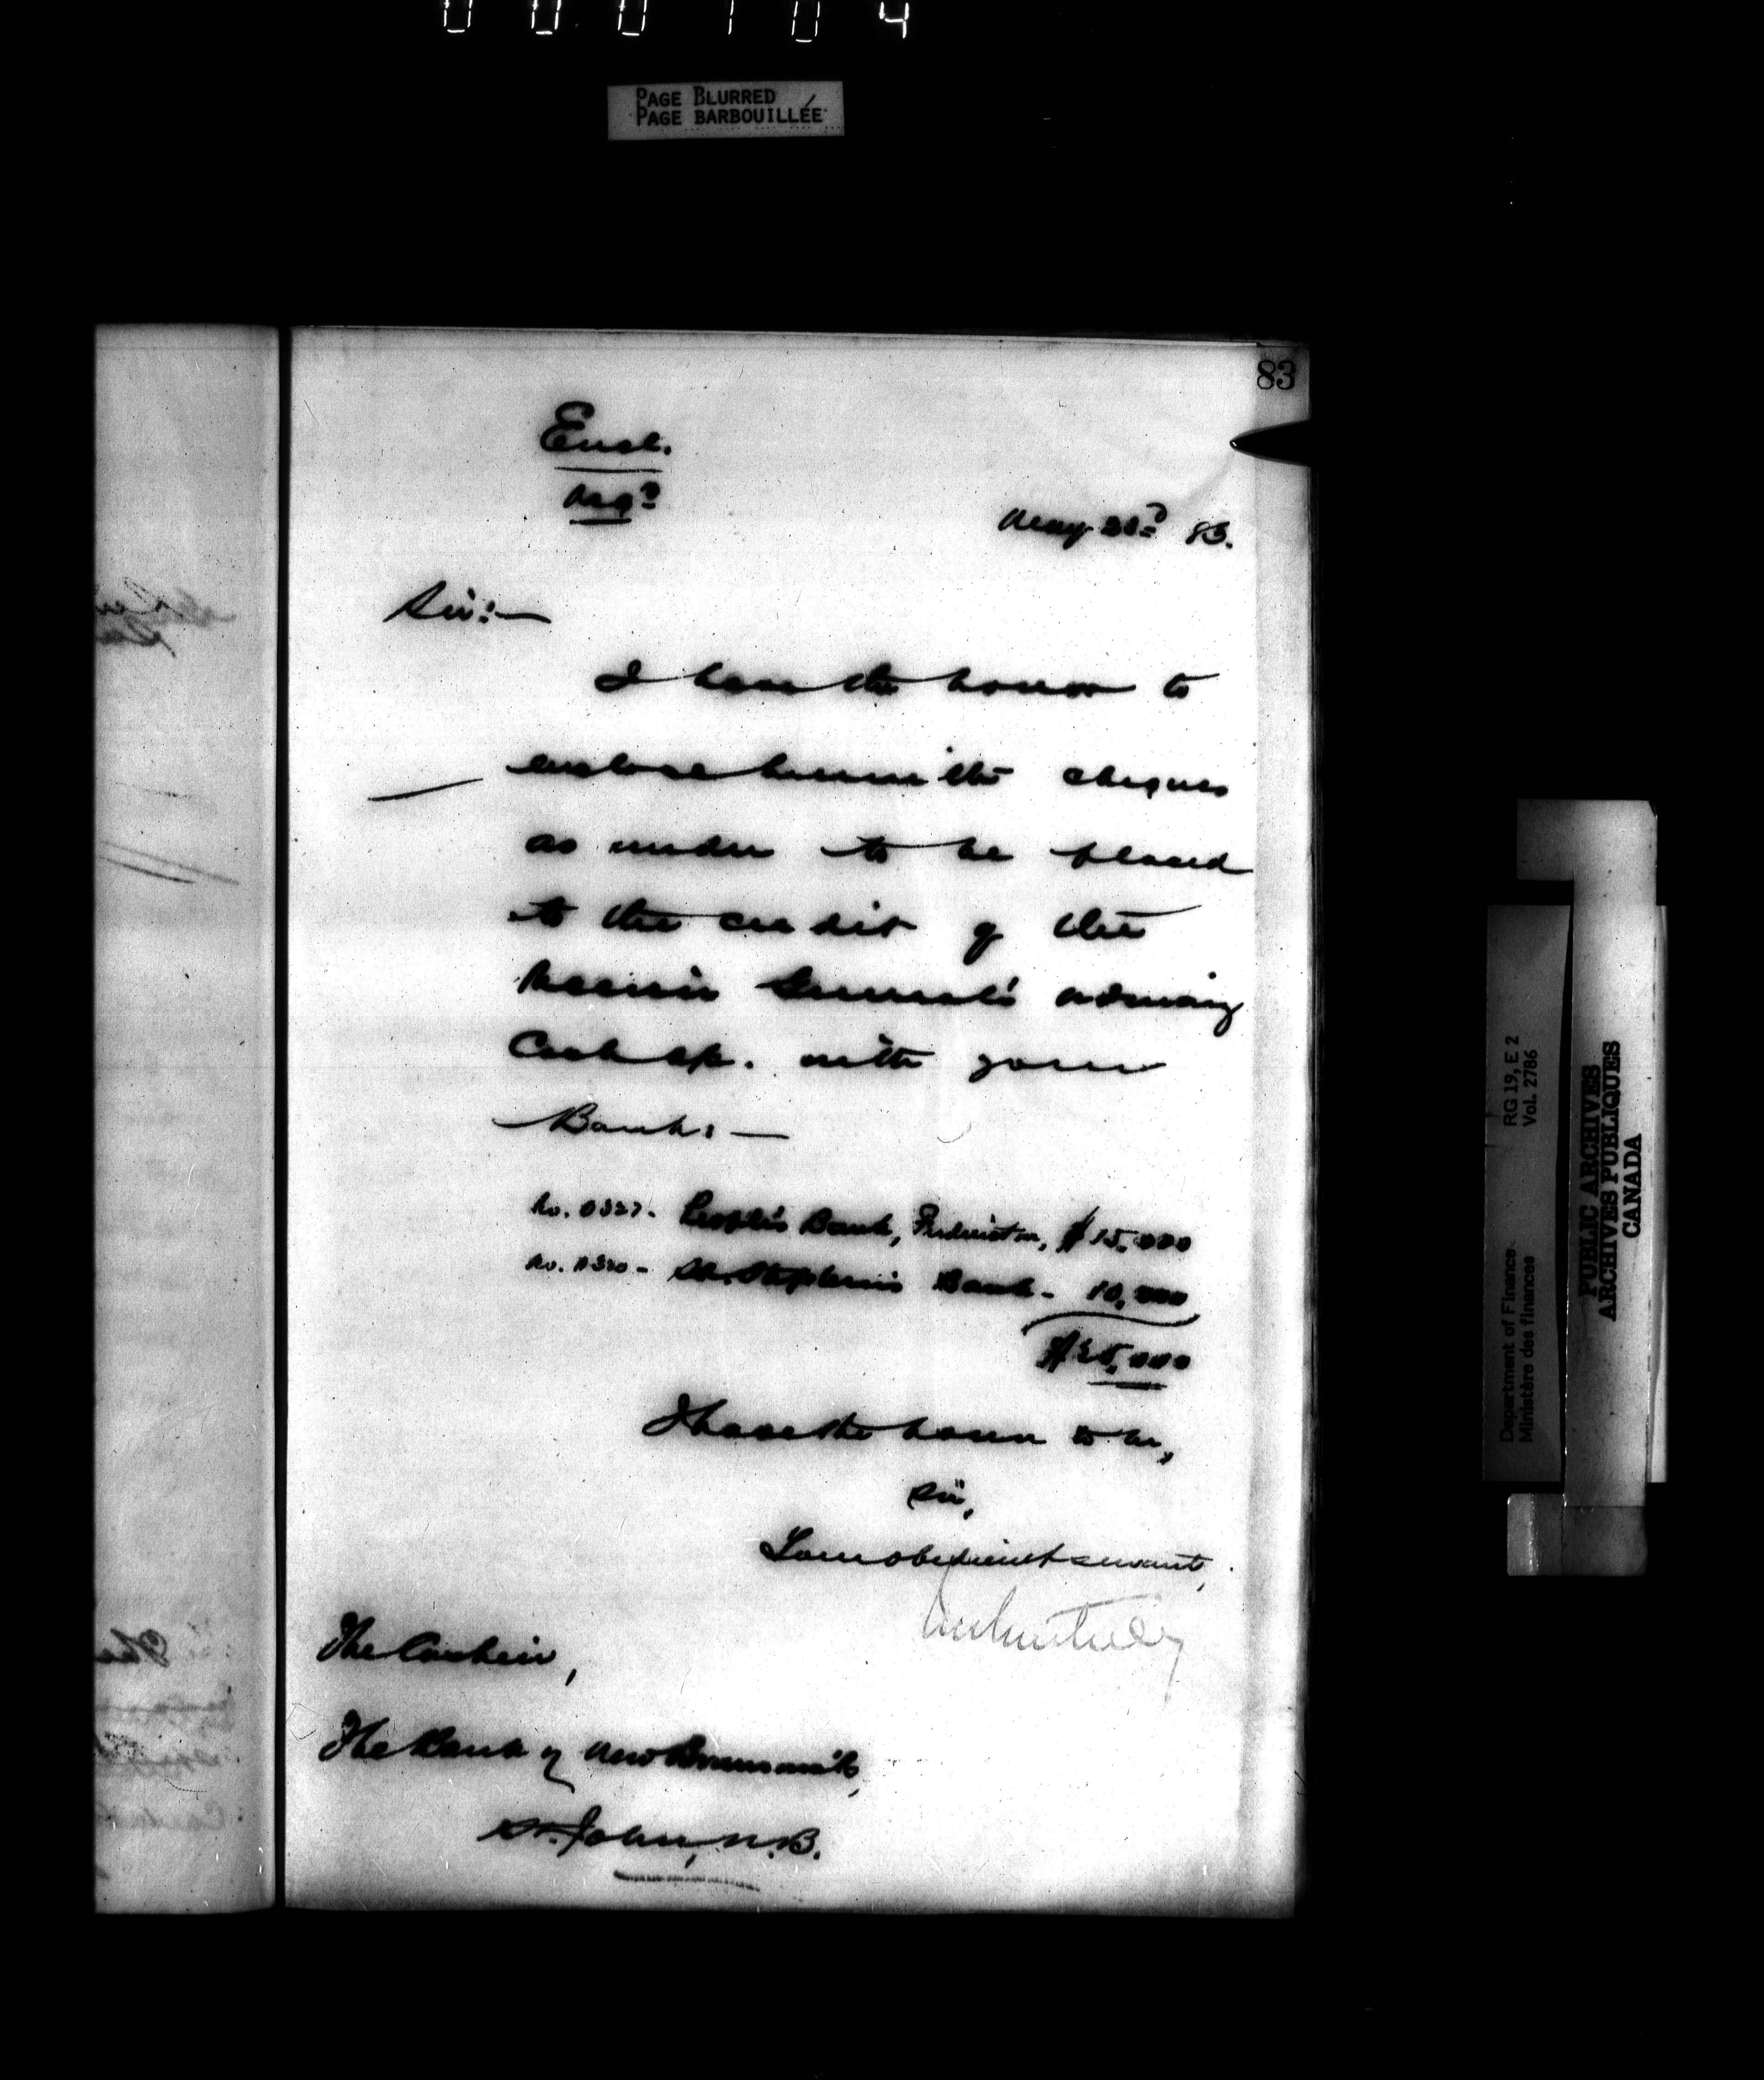 000104
PAGE BLURRED
PAGE BARBOUILLÉE
83
Encl.
Regd
May 23d 83.
Sir:—
I have the honour to
enclose herewith cheques
as under to be placed
to the credit of the
Receiver General's ordinary
Cash a/c. with your
Bank:—
No. People's Bank, Fredericton, $15,000
No. St. Stephen's Bank - 10,000
$25,000
I have the honour to be,
Sir,
Your obedient servant,
The Cashier,
The Bank of New Brunswick,
St. John, N.B.
Department of Finance
Ministère des finances
RG 19, E 2
Vol. 2786
PUBLIC ARCHIVES
ARCHIVES PUBLIQUES
CANADA